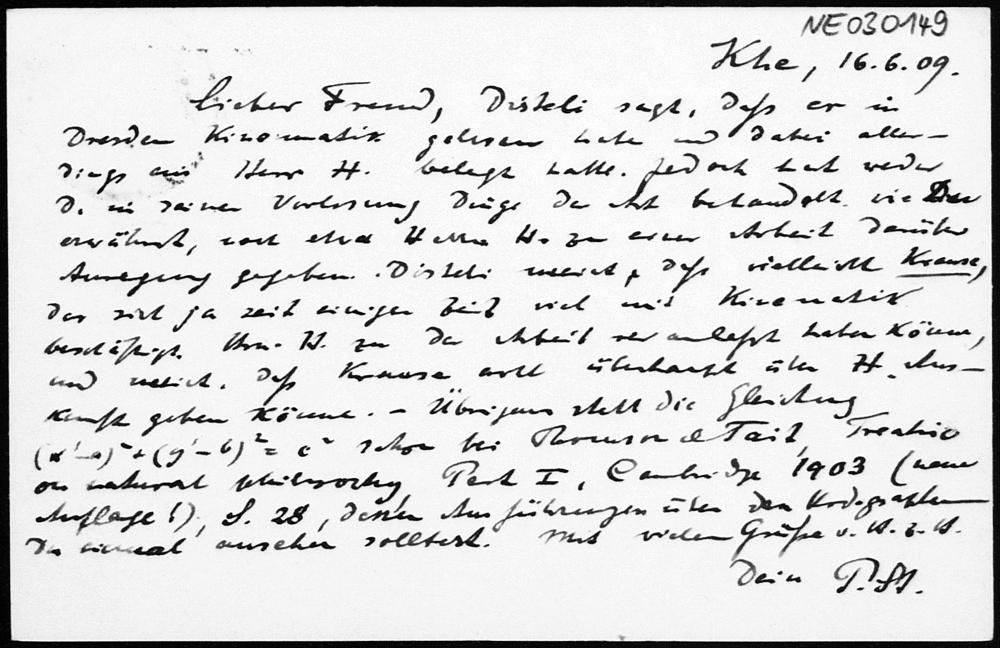 NE030149
Khe, 16.6.09.
Lieber Freund, Disteli sagt, daß er in
Dresden Kinematik gelesen habe und dabei aller-
dings ein Herr H. belegt hatte. Jedoch hat weder
D. in seiner Vorlesung Dinge der Art behandelt, wie Du
erwähnst, noch etwa Herrn H. zu einer Arbeit darüber
Anregung gegeben. Disteli meint, daß vielleicht Krause,
der sich ja seit einiger Zeit viel mit Kinematik
beschäftigt, Hrn. H. zu der Arbeit veranlaßt haben könne,
und meint, daß Krause wohl überhaupt über H. Aus-
kunft geben könne. – Übrigens steht die Gleichung
(x'-a)²+(y'-b)²=c² schon bei Thomson & Tait, Treatise
on natural philosophy, Part I, Cambridge 1903 (neue
Auflage!), S. 28, dessen Ausführungen über den Hodographen
Du einmal ansehen solltest. Mit vielen Grüßen v. H. z. H.
Dein P. St.